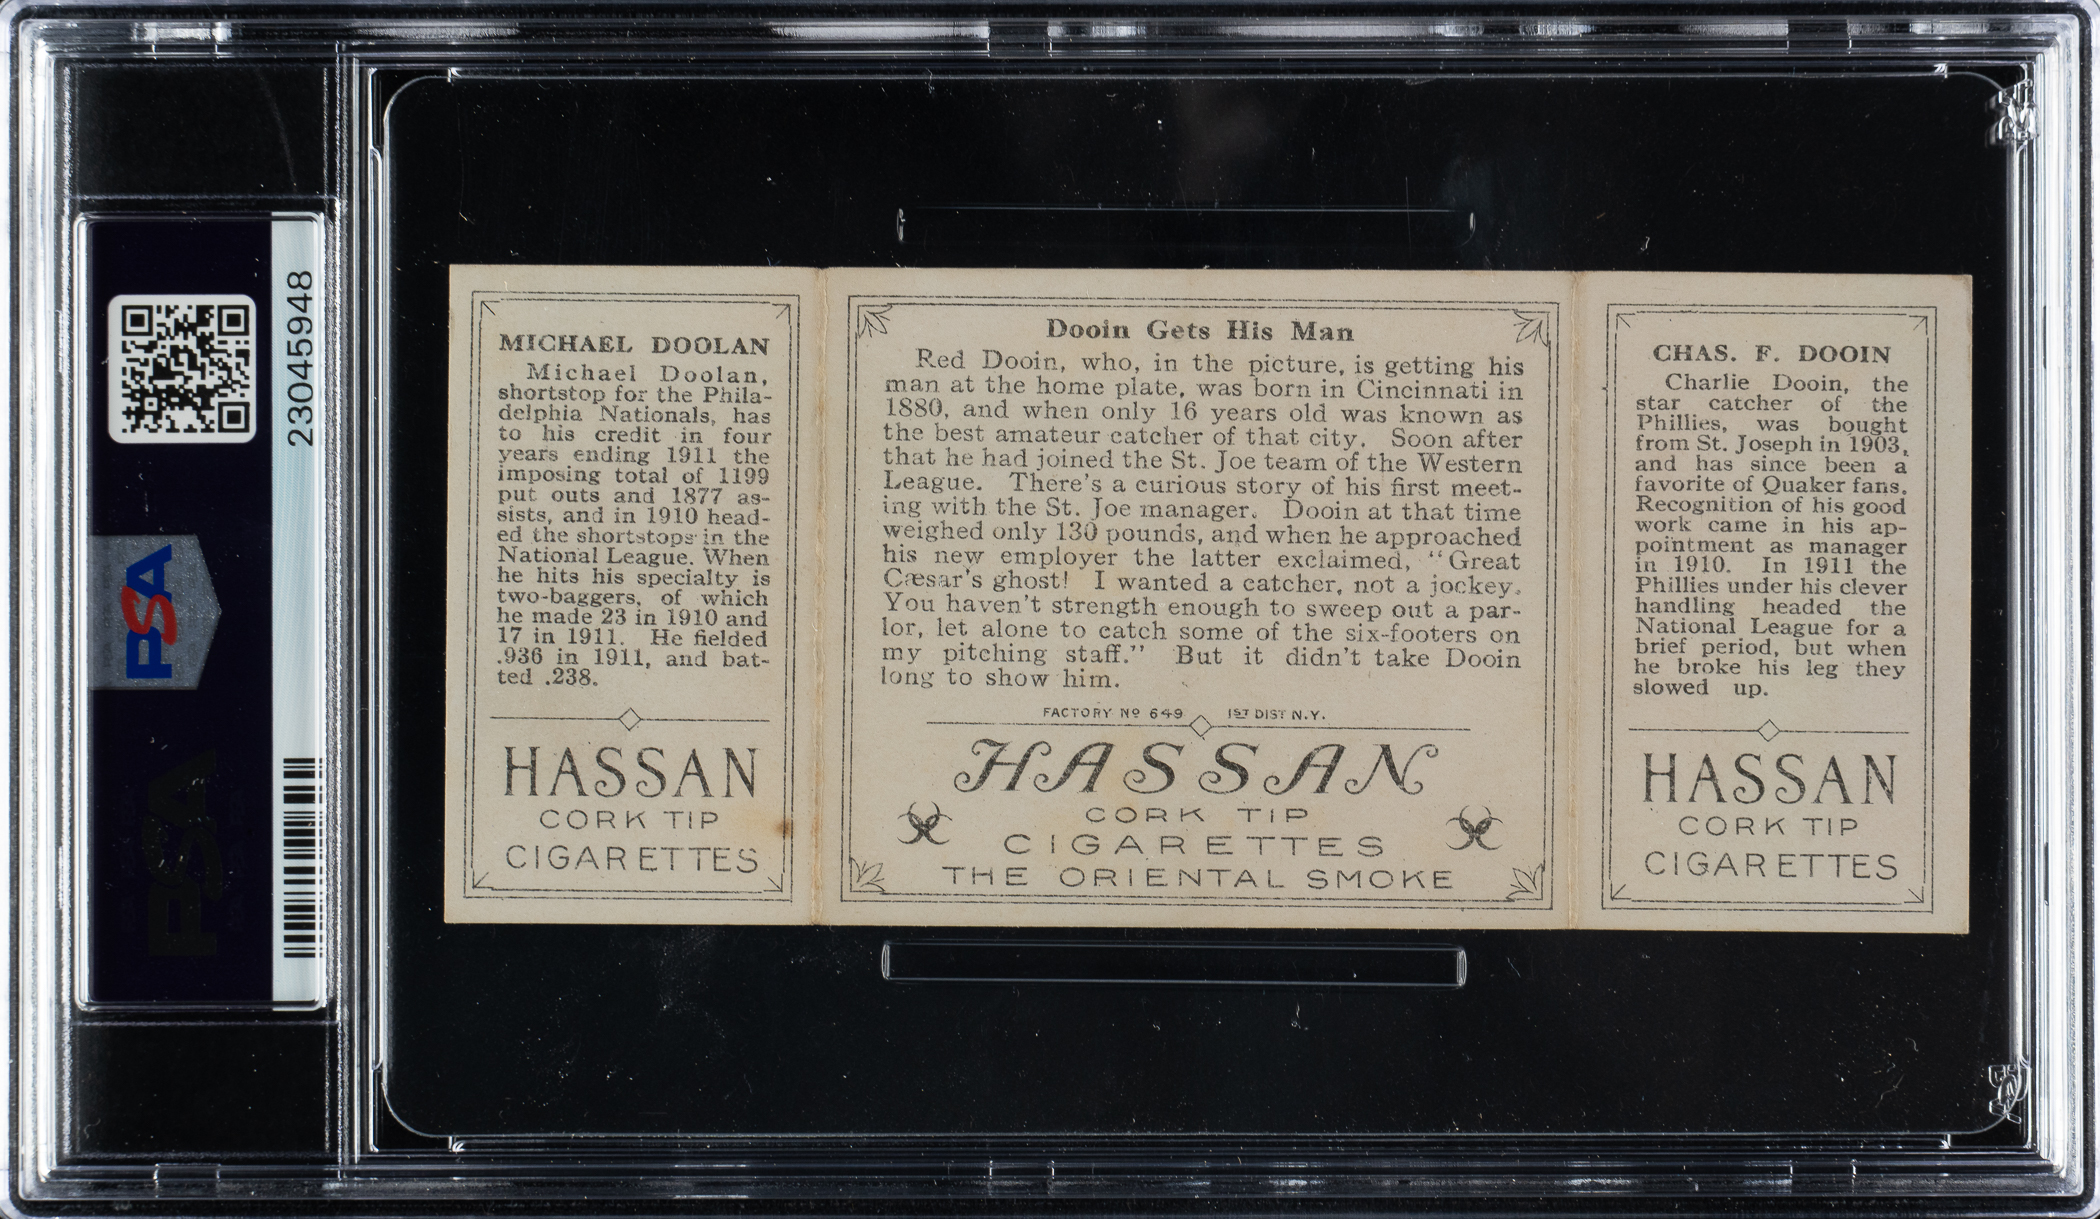 23045948
PSA
PSA
MICHAEL DOOLAN
Michael Doolan,
shortstop for the Phila-
delphia Nationals, has
to his credit in four
years ending 1911 the
imposing total of 1199
put outs and 1877 as-
sists, and in 1910 head-
ed the shortstops in the
National League. When
he hits his specialty is
two-baggers, of which
he made 23 in 1910 and
17 in 1911. He fielded
.936 in 1911, and bat-
ted .238.
HASSAN
CORK TIP
CIGARETTES
Dooin Gets His Man
Red Dooin, who, in the picture, is getting his
man at the home plate, was born in Cincinnati in
1880, and when only 16 years old was known as
the best amateur catcher of that city. Soon after
that he had joined the St. Joe team of the Western
League. There's a curious story of his first meet-
ing with the St. Joe manager. Dooin at that time
weighed only 130 pounds, and when he approached
his new employer the latter exclaimed, "Great
Cæsar's ghost! I wanted a catcher, not a jockey.
You haven't strength enough to sweep out a par-
lor, let alone to catch some of the six-footers on
my pitching staff." But it didn't take Dooin
long to show him.
FACTORY Nº 649 1ST DIST N.Y.
HASSAN
CORK TIP
CIGARETTES
THE ORIENTAL SMOKE
CHAS. F. DOOIN
Charlie Dooin, the
star catcher of the
Phillies, was bought
from St. Joseph in 1903,
and has since been a
favorite of Quaker fans.
Recognition of his good
work came in his ap-
pointment as manager
in 1910. In 1911 the
Phillies under his clever
handling headed the
National League for a
brief period, but when
he broke his leg they
slowed up.
HASSAN
CORK TIP
CIGARETTES